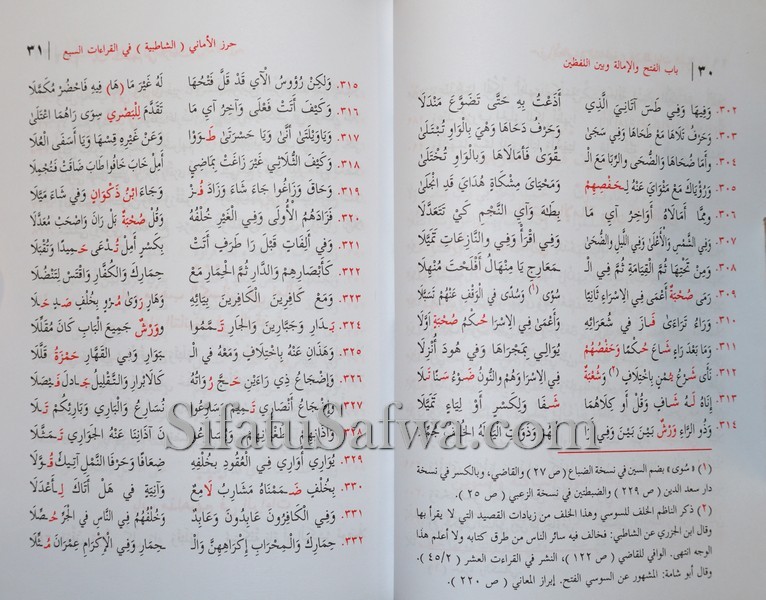 ٣٠ باب الفتح والإمالة وبين اللفظين
٣٠٢. وَفِيهَا وَفِي طَسَ آتَانِيَ الَّذِي أَذَعْتُ بِهِ حَتَّى تَضَوَّعَ مَنْدَلَا
٣٠٣. وَحَرْفُ تَلَاهَا مَعْ طَحَاهَا وَفِي سَجَى وَحَرْفُ دَحَاهَا وَهْيَ بِالْوَاوِ تُبْتَلَى
٣٠٤. وَأَمَّا ضُحَاهَا وَالضُّحَى وَالرِّبَا مَعَ الْـ ـقُوَى فَأَمَالَاهَا وَبِالْوَاوِ تُخْتَلَى
٣٠٥. وَرُؤْيَاكَ مَعْ مَثْوَايَ عَنْهُ لِحَفْصِهِمْ وَمَحْيَايَ مِشْكَاةٍ هُدَايَ قَدِ انْجَلَى
٣٠٦. وَمِمَّا أَمَالَاهُ أَوَاخِرُ آيِ مَا بِطَهَ وَآيِ النَّجْمِ كَيْ تَتَعَدَّلَا
٣٠٧. وَفِي الشَّمْسِ وَالْأَعْلَى وَفِي اللَّيْلِ وَالضُّحَى وَفِي اقْرَأْ وَفِي وَالنَّازِعَاتِ تَمَيَّلَا
٣٠٨. وَمِنْ تَحْتِهَا ثُمَّ الْقِيَامَةِ ثُمَّ فِي الْـ ـمَعَارِجِ يَا مِنْهَالُ أَفْلَحْتَ مُنْهِلَا
٣٠٩. رَمَى صُحْبَةٌ أَعْمَى فِي الِاسْرَاءِ ثَانِيًا سُوًى (١) وَسُدًى فِي الْوَقْفِ عَنْهُمْ تَسَبَّلَا
٣١٠. وَرَاءُ تَرَاءَى فَازَ فِي شُعَرَائِهِ وَأَعْمَى فِي الِاسْرَا حُكْمُ صُحْبَةٍ اوَّلَا
٣١١. وَمَا بَعْدَ رَاءٍ شَاعَ حُكْمًا وَحَفْصُهُمْ يُوَالِي بِمَجْرَاهَا وَفِي هُودَ أُنْزِلَا
٣١٢. نَأَى شَرْعُ يُمْنٍ بِاخْتِلَافٍ (٢) وَشُعْبَةٌ فِي الِاسْرَا وَهُمْ وَالنُّونُ ضَوْءُ سَنًا تَلَا
٣١٣. إِنَاهُ لَهُ شَافٍ وَقُلْ أَوْ كِلَاهُمَا شَفَا وَلِكَسْرٍ أَوْ لِيَاءٍ تَمَيَّلَا
٣١٤. وَذُو الرَّاءِ وَرْشٌ بَيْنَ بَيْنَ وَفِي
(١) « سُوًى » بضم السين في نسخة الضباع ( ص ٢٧ ) والقاضي، وبالكسر في نسخة
دار سعد الدين ( ص ٢٢٩ ) والضبطتين في نسخة الزعبي ( ص ٢٥ ).
(٢) ذكر الناظم الخلف للسوسي وهذا الخلف من زيادات القصيد التي لا يقرأ بها
وقال ابن الجزري عن الشاطبي: فخالف فيه سائر الناس من طرق كتابه ولا أعلم هذا
الوجه انتهى. الوافي للقاضي ( ص ١٢٢ )، النشر في القراءات العشر ( ٤٥/٢ )
وقال أبو شامة: المشهور عن السوسي الفتح. إبراز المعاني ( ص ٢٢٠ ).
حرز الأماني ( الشاطبية ) في القراءات السبع ٣١
٣١٥. وَلَكِنْ رُؤُوسُ الْآيِ قَدْ قَلَّ فَتْحُهَا لَهُ غَيْرَ مَا (هَا) فِيهِ فَاحْضُرْ مُكَمَّلَا
٣١٦. وَكَيْفَ أَتَتْ فَعْلَى وَآخِرُ آيِ مَا تَقَدَّمَ لِلْبَصْرِي سِوَى رَاهُمَا اعْتَلَى
٣١٧. وَيَاوَيْلَتَى أَنَّى وَيَا حَسْرَتَى طَوَوْا وَعَنْ غَيْرِهِ قِسْهَا وَيَا أَسَفَى الْعُلَا
٣١٨. وَكَيْفَ الثُّلَاثِي غَيْرَ زَاغَتْ بِمَاضِيٍ أَمِلْ خَابَ خَافُوا طَابَ ضَاقَتْ فَتُجْمِلَا
٣١٩. وَحَاقَ وَزَاغُوا جَاءَ شَاءَ وَزَادَ فُزْ وَجَاءَ ابْنُ ذَكْوَانٍ وَفِي شَاءَ مَيَّلَا
٣٢٠. فَزَادَهُمُ الْأُولَى وَفِي الْغَيْرِ خُلْفُهُ وَقُلْ صُحْبَةٌ بَلْ رَانَ وَاصْحَبْ مُعَدَّلَا
٣٢١. وَفِي أَلِفَاتٍ قَبْلَ رَا طَرَفٍ أَتَتْ بِكَسْرٍ أَمِلْ تُدْعَى حَمِيدًا وَتُقْبَلَا
٣٢٢. كَأَبْصَارِهِمْ وَالدَّارِ ثُمَّ الْحِمَارِ مَعْ حِمَارِكَ وَالْكُفَّارِ وَاقْتَسْ لِتَنْضُلَا
٣٢٣. وَمَعْ كَافِرِينَ الْكَافِرِينَ بِيَائِهِ وَهَارٍ رَوَى مُرْوٍ بِخُلْفٍ صَدٍ حَلَا
٣٢٤. بَدَارِ وَجَبَّارِينَ وَالْجَارِ تَمَّمُوا وَوَرْشٌ جَمِيعَ الْبَابِ كَانَ مُقَلِّلَا
٣٢٥. وَهَذَانِ عَنْهُ بِاخْتِلَافٍ وَمَعْهُ فِي الْـ ـبَوَارِ وَفِي الْقَهَّارِ حَمْزَةُ قَلَّلَا
٣٢٦. وَإِضْجَاعُ ذِي رَاءَيْنِ حَجَّ رُوَاتُهُ كَالَابْرَارِ وَالتَّقْلِيلُ جَادَلَ فَيْصَلَا
٣٢٧. وَإِضْجَاعُ أَنْصَارِي تَمِيمٌ وَسَارِعُوا نُسَارِعُ وَالْبَارِي وَبَارِئِكُمْ تَلَا
٣٢٨. وَآذَانِهِمْ نَ آذَانِنَا عَنْهُ الْجَوَارِي تَمَثَّلَا
٣٢٩. يُوَارِي أُوَارِي فِي الْعُقُودِ بِخُلْفِهِ ضِعَافًا وَحَرْفَا النَّمْلِ آتِيكَ قُوَّلَا
٣٣٠. بِخُلْفٍ ضَمَمْنَاهُ مَشَارِبُ لَامِعٌ وَآنِيَةٍ فِي هَلْ أَتَاكَ لِأَعْدَلَا
٣٣١. وَفِي الْكَافِرُونَ عَابِدُونَ وَعَابِدٌ وَخُلْفُهُمُ فِي النَّاسِ فِي الْجَرِّ حُصِّلَا
٣٣٢. حِمَارِكَ وَالْمِحْرَابِ إِكْرَاهِهِنَّ وَالْـ ـحِمَارِ وَفِي الْإِكْرَامِ عِمْرَانَ مُثِّلَا
SifatuSafwa.com